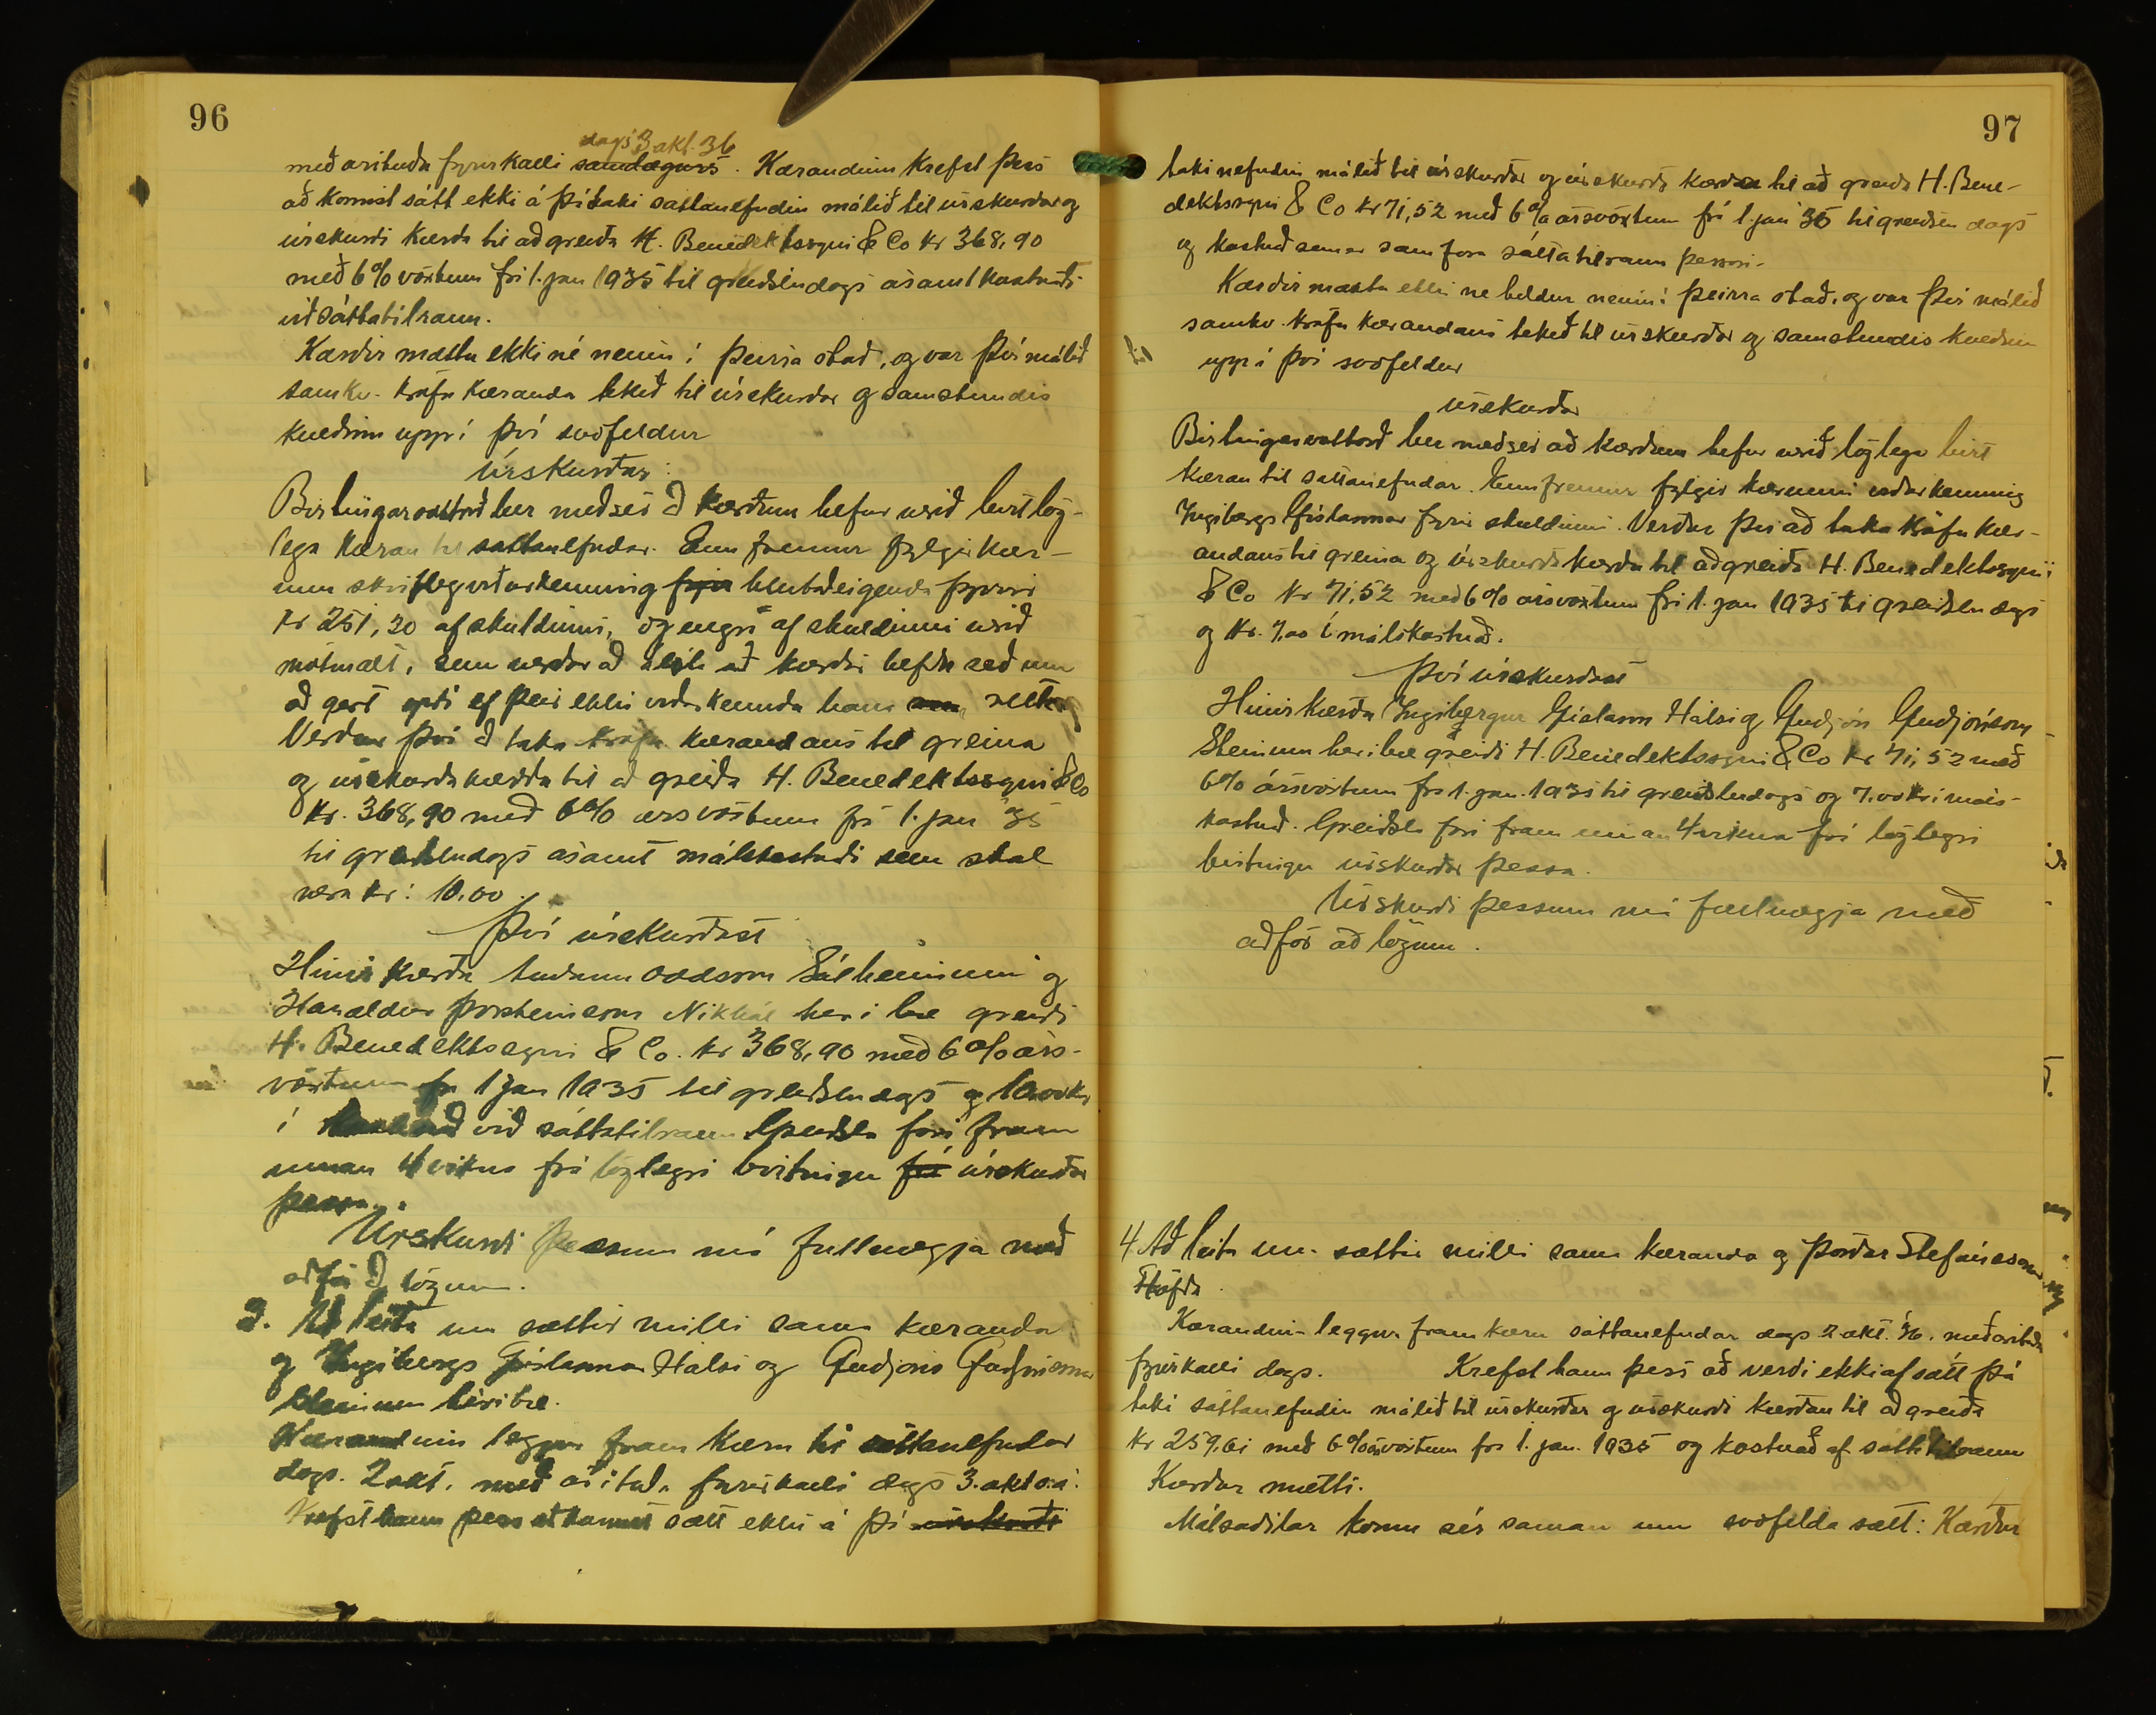 96
dags 3 okt. 36
með árituðu fyrirkalli samdægurs. Kærandinn krefst þess
að komist sátt ekki á þá taki sáttanefndin málið til úrskurðar og
úrskurði kærða til að greiða H. Benediktssyni & Co kr 368,90
með 6% vöxtum frá 1. jan 1935 til greiðsludags ásamt kostnaði
við sáttatilraun.
Kærðir mættu ekki né neinn í þeirra stað, og var því málið
samkv. kröfu kæranda tekið til úrskurðar og samstundis
kveðinn upp í því svofeldur
Úrskurður:
Birtingarvottorð ber með sér að kærðum hefur verið birt lög-
lega kæran til sáttanefndar. Enn fremur fylgir kær-
unni skrifleg viðurkenning fyrir hlutaðeigenda fyrir
kr 251,30 af skuldinni, og engri af skuldinni verið
mótmælt, sem verður að álíta að kærði hefðu séð um
að gert yrði ef þeir ekki viðurkenndu hana rétta
Verður því að taka kröfu kærandans til greina
og úrskurða kærða til að greiða H. Benediktssyni & Co
kr. 368,90 með 6% ársvöxtum frá 1. jan 35
til greiðsludags ásamt málskostnaði sem skal
vera kr: 10.00.
Því úrskurðast
Hinir kærðu Guðmann Oddsson Sólheimum og
Haraldur Þorsteinsson Nikhól hér í bæ greiði
H. Benediktssyni & Co. kr 368,90 með 6% árs-
vöxtum frá 1 jan 1935 til greiðsludags og 10.00 kr
í kostnað við sáttatilraun Greiðsla fari fram
innan 4 vikna frá löglegri birtingu frá úrskurðar
þessa.
Úrskurði þessum má fullnægja með
aðför að lögum.
3. Að leita um sættir milli sama kæranda
og Ingibergs Gíslasonar Hálsi og Guðjóns Guðjónssonar
Steinum hér í bæ.
Kærandinn leggur fram kæru til sáttanefndar
dags. 2 okt. með árituðu fyrirkalli dags 3. okt s.á.
Krefst hann þess að komist sátt ekki á þá úrskurði
97
taki nefndin málið til úrskurðar og úrskurði kærða til að greiða H. Bene-
diktssyni & Co kr 71,52 með 6% ársvöxtum frá 1. jan 35 til greiðsludags
og kostnað sem er samfara sáttatilraun þessari.
Kærðir mættu ekki né heldur neinn í þeirra stað, og var því málið
samkv. kröfu kærandans tekið til úrskurðar og samstundis kveðinn
upp í því svofeldur
úrskurður
Birtingarvottorð ber með sér að kærðum hefur verið löglega birt
kæran til sáttanefndar. Ennfremur fylgir kærunni viðurkenning
Ingibergs Gíslasonar fyrir skuldinni. Verður því að taka kröfu kær-
andans til greina og úrskurða kærðu til að greiða H. Benediktssyni
& Co kr 71,52 með 6% ársvöxtum frá 1. jan 1935 til greiðsludags
og kr. 7.00 í málskostnað.
Því úrskurðast
Hinir kærðu Ingibergur Gíslason Hálsi og Guðjón Guðjónsson
Steinum hér í bæ greiði H. Benediktssyni & Co kr 71,52 með
6% ársvöxtum frá 1. jan. 1935 til greiðsludags og 7.00 kr í máls-
kostnað. Greiðsla fari fram innan 4 vikna frá löglegri
birtingu úrskurðar þessa.
Úrskurði þessum má fullnægja með
aðför að lögum.
4 Að leita um sættir milli sama kæranda og Þórðar Stefánssonar
Höfða.
Kærandinn leggur fram kæru sáttanefndar dags 2 okt. 36. með árituðu
fyrirkalli dags. Krefst hann þess að verði ekki af sátt þá
taki sáttanefndin málið til úrskurðar og úrskurði kærðan til að greiða
kr 259,61 með 6% ársvöxtum frá 1. jan. 1935 og kostnað af sáttatilraun
Kærður mætti.
Málsaðilar komu sér saman um svofelda sátt: Kærður